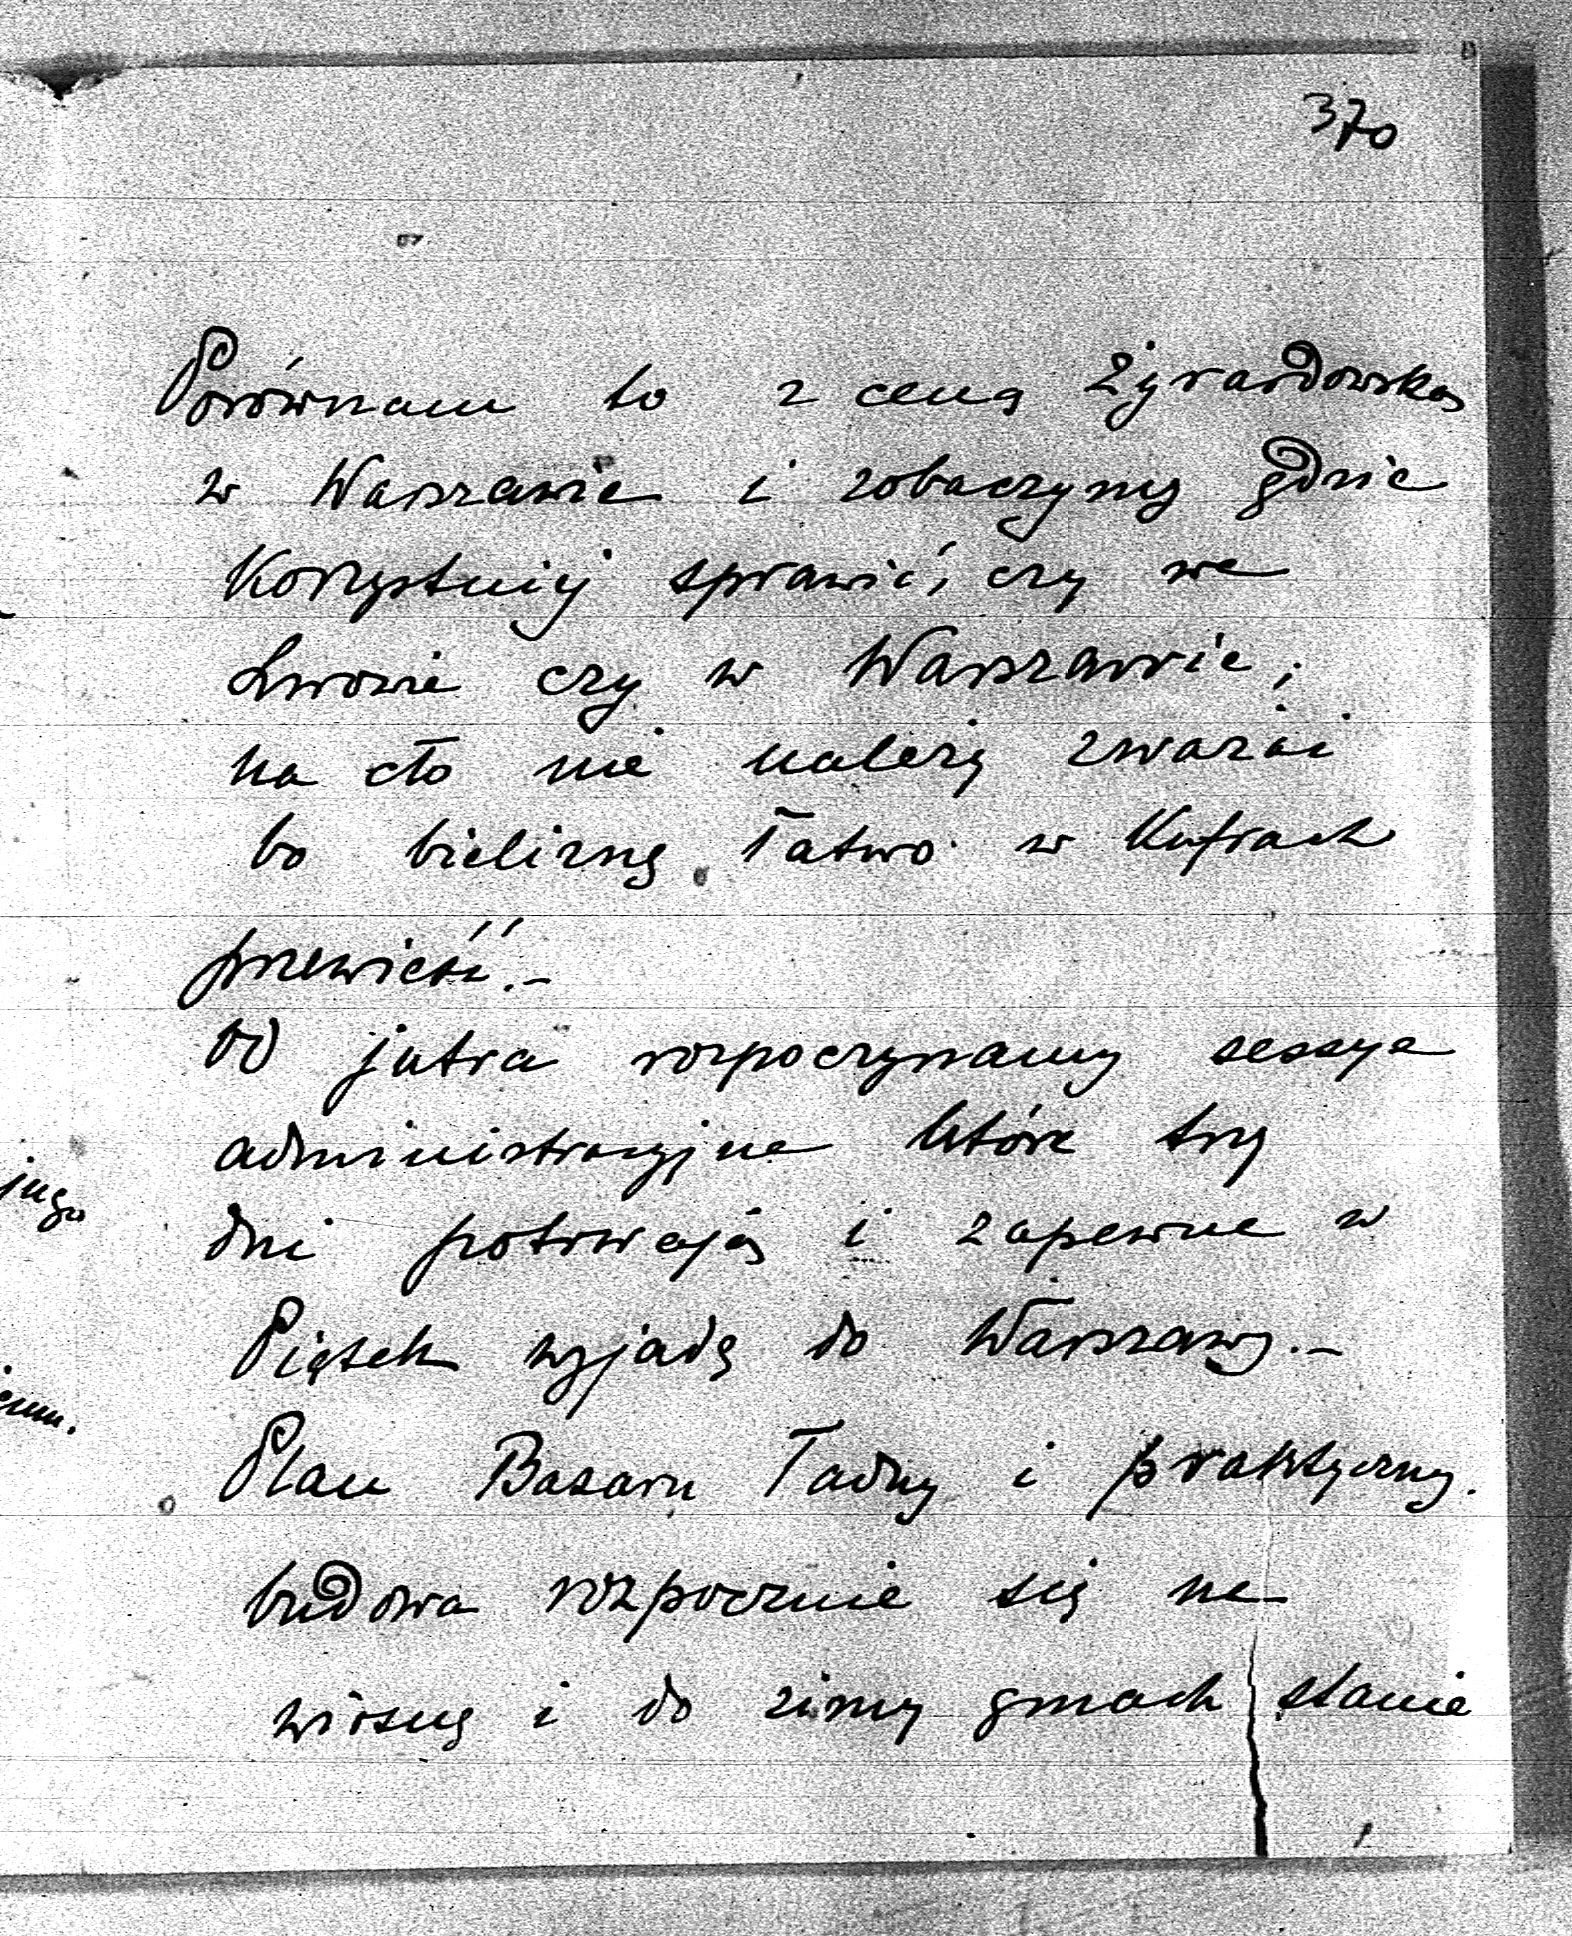 370
Porównam to z ceną Żyrardowską
w Warszawie i zobaczymy gdzie
korzystniej sprawić, czy we
Lwowie czy w Warszawie;
na cło nie należy zważać
bo bieliznę łatwo w kufrach
przewieść.–
Od jutra rozpoczynamy sessye
administracyjne które trzy
dni potrwają i zapewne w
Piątek wyjadę do Warszawy.–
Plan Bazaru ładny i praktyczny.
budowa rozpocznie się na
wiosnę i do zimy gmach stanie